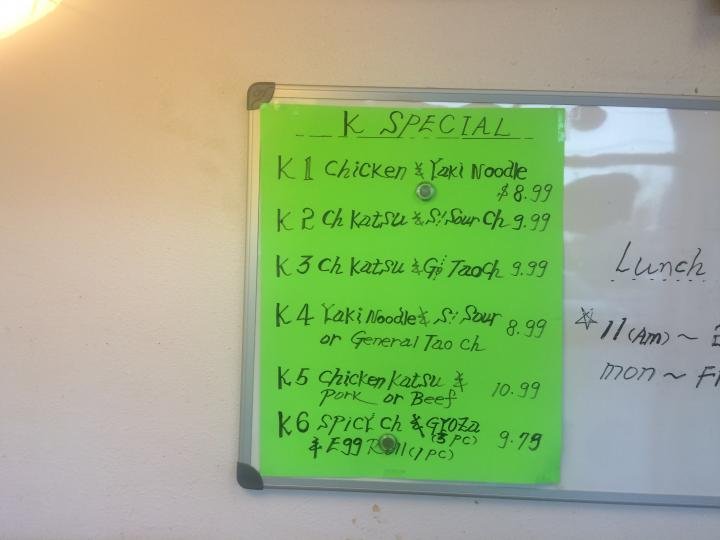 K SPECIAL
K1 Chicken & Yaki Noodle
$8.99
K2 Ch Katsu & S/Sour Ch 9.99
K3 Ch Katsu & G/ Tao Ch 9.99
K4 Yaki Noodle & S/ Sour 8.99
or General Tao Ch
K5 Chicken Katsu & 10.99
Pork or Beef
K6 SPICY Ch & Gyoza 9.79
(3 PC)
& Egg Roll (1 PC)
Lunch
☆ 11 (Am) ~
mon ~ F